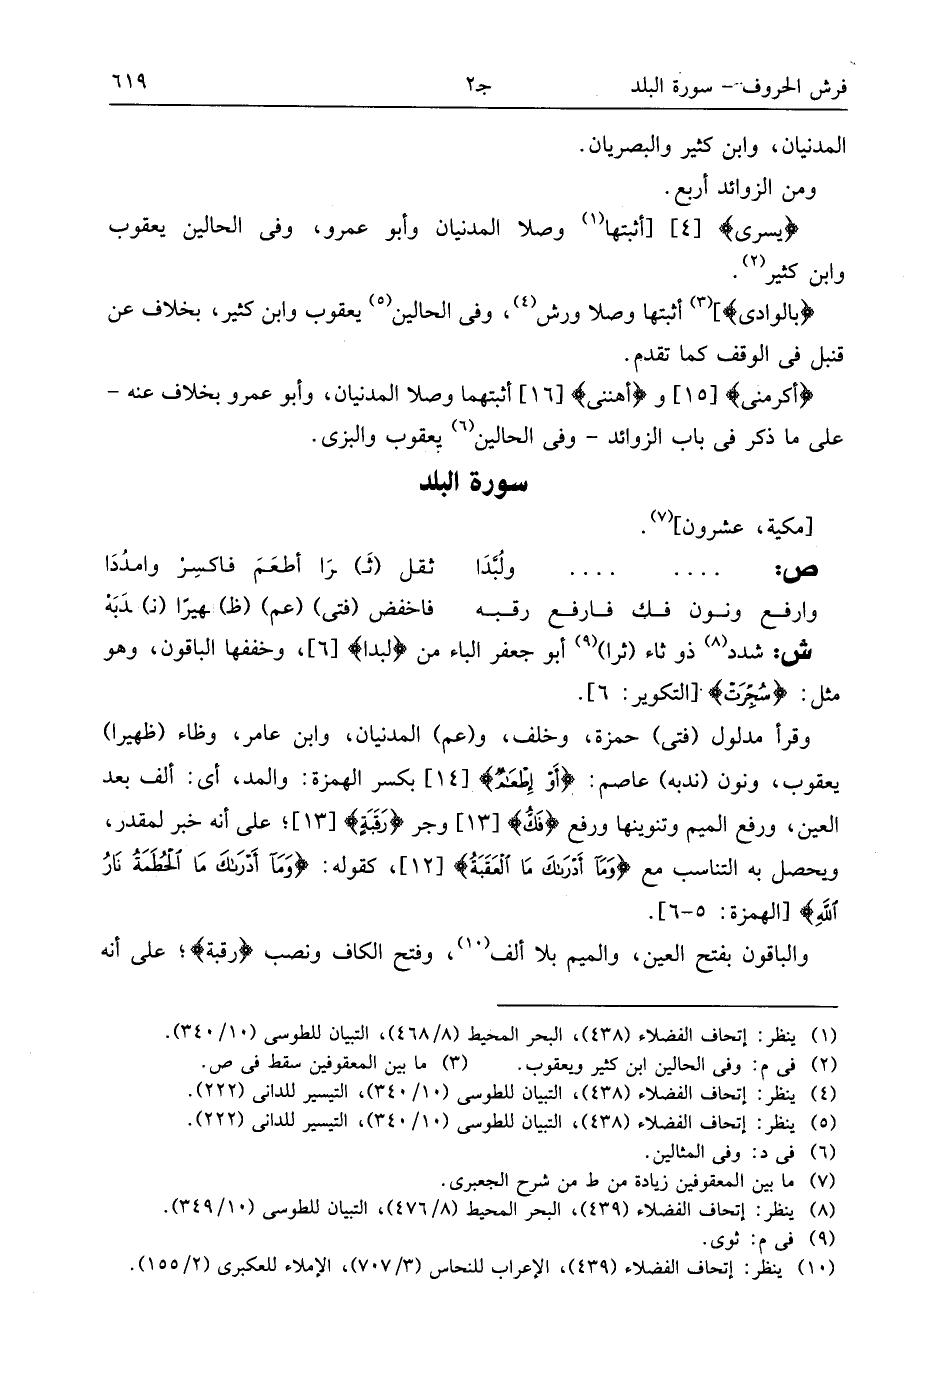 فرش الحروف – سورة البلد جـ٢ ٦١٩
المدنيان، وابن كثير والبصريان.
ومن الزوائد أربع.
﴿يسرى﴾ [٤] [أثبتها(١) وصلا المدنيان وأبو عمرو، وفى الحالين يعقوب
وابن كثير(٢).
﴿بالوادى﴾](٣) أثبتها وصلا ورش(٤)، وفى الحالين(٥) يعقوب وابن كثير، بخلاف عن
قنبل فى الوقف كما تقدم.
﴿أكرمنى﴾ [١٥] و ﴿أهننى﴾ [١٦] أثبتهما وصلا المدنيان، وأبو عمرو بخلاف عنه –
على ما ذكر فى باب الزوائد – وفى الحالين(٦) يعقوب والبزى.
سورة البلد
[مكية، عشرون](٧).
ص: .... .... ولُبَّدَا ثقل (ثَـ) ـرَا أطعَمَ فاكسِرْ وامدُدَا
وارفع ونـون فـك فـارفع رقبـه فاخفض (فتى) (عم) (ظ) ـهيرًا (نـ) ـدَبَهْ
ش: شدد(٨) ذو ثاء (ثرا)(٩) أبو جعفر الباء من ﴿لبدا﴾ [٦]، وخففها الباقون، وهو
مثل: ﴿سُجِّرَتْ﴾ [التكوير: ٦].
وقرأ مدلول (فتى) حمزة، وخلف، و(عم) المدنيان، وابن عامر، وظاء (ظهيرا)
يعقوب، ونون (ندبه) عاصم: ﴿أَوْ إِطْعَـٰمٌ﴾ [١٤] بكسر الهمزة: والمد، أى: ألف بعد
العين، ورفع الميم وتنوينها ورفع ﴿فَكُّ﴾ [١٣] وجر ﴿رَقَبَةٍ﴾ [١٣]؛ على أنه خبر لمقدر،
ويحصل به التناسب مع ﴿وَمَآ أَدْرَىٰكَ مَا ٱلْعَقَبَةُ﴾ [١٢]، كقوله: ﴿وَمَآ أَدْرَىٰكَ مَا ٱلْحُطَمَةُ نَارُ
ٱللَّهِ﴾ [الهمزة: ٥-٦].
والباقون بفتح العين، والميم بلا ألف(١٠)، وفتح الكاف ونصب ﴿رقبة﴾؛ على أنه
(١) ينظر: إتحاف الفضلاء (٤٣٨)، البحر المحيط (٤٦٨/٨)، التبيان للطوسى (٣٤٠/١٠).
(٢) فى م: وفى الحالين ابن كثير ويعقوب. (٣) ما بين المعقوفين سقط فى ص.
(٤) ينظر: إتحاف الفضلاء (٤٣٨)، التبيان للطوسى (٣٤٠/١٠)، التيسير للدانى (٢٢٢).
(٥) ينظر: إتحاف الفضلاء (٤٣٨)، التبيان للطوسى (٣٤٠/١٠)، التيسير للدانى (٢٢٢).
(٦) فى د: وفى المثالين.
(٧) ما بين المعقوفين زيادة من ط من شرح الجعبرى.
(٨) ينظر: إتحاف الفضلاء (٤٣٩)، البحر المحيط (٤٧٦/٨)، التبيان للطوسى (٣٤٩/١٠).
(٩) فى م: ثوى.
(١٠) ينظر: إتحاف الفضلاء (٤٣٩)، الإعراب للنحاس (٧٠٧/٣)، الإملاء للعكبرى (١٥٥/٢).